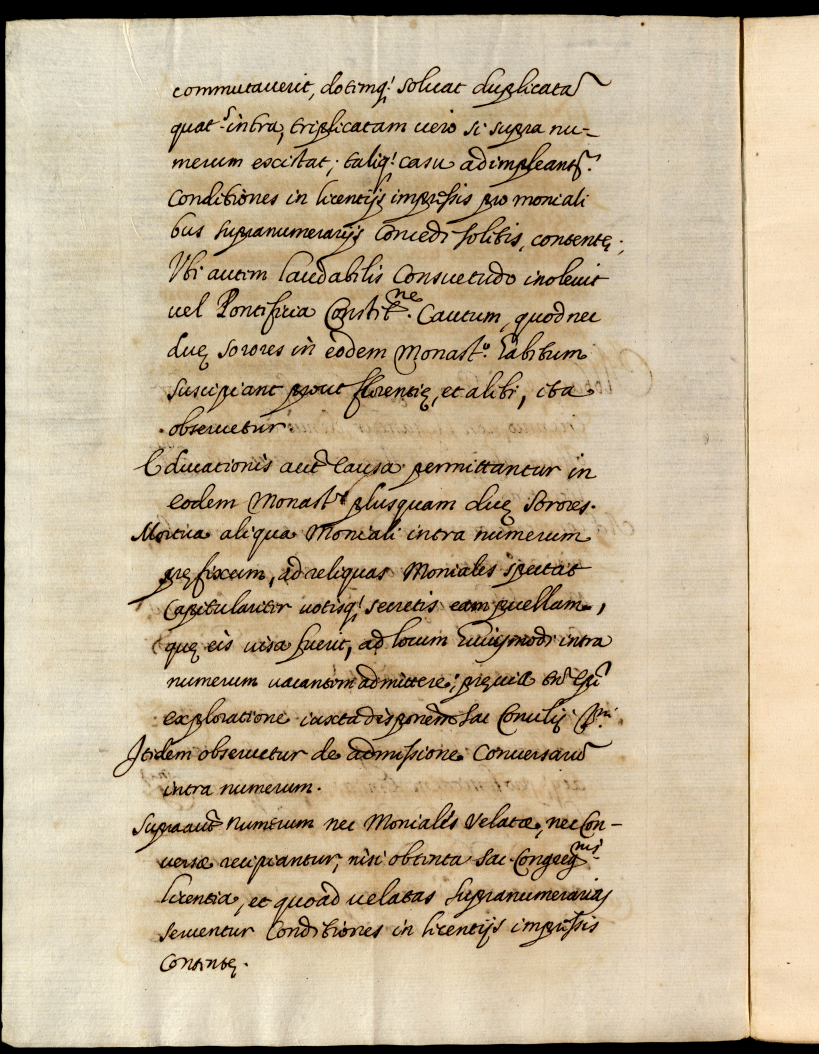 commutauerit, dotemq; soluat duplicatã
quat.s intra, triplicatam uero si supra nu-
merum existat; taliq; casu adimpleantr.
Conditiones in licentijs impressis pro moniali
bus supranumerarijs Concedi solitis, contentę;
Vbi autem laudabilis Consuetudo inoleuit
uel Pontificia Constit.ne Cautum, quod nec
duę sorores in eodem Monast.o habitum
suscipiant prout florentię, et alibi, ita
obseruetur
Educationis aut̃ Causa permittantur in
eodem Monast.o plusquam duę sorores.
Mortua aliqua Moniali intra numerum
pręfixum, ad reliquas Moniales spectat
Capitulariter uotisq; secretis eam puellam,
quę eis uisa fuerit, ad locum huiusmodi intra
numerum uacantem admittere; preuia tñ Epĩ
exploratione iuxta disponem̃ Sac. Concilij Trni.
Itidem obseruetur de admissione Conuersarũ
intra numerum.
Supra aut̃ numerum nec Moniales Velatæ, nec Con-
uersæ recipiantur, nisi obtenta Sac. Congreg.nis
licentia, et quoad uelatas supranumerarias
seruentur Conditiones in licentijs impressis
Contentę.